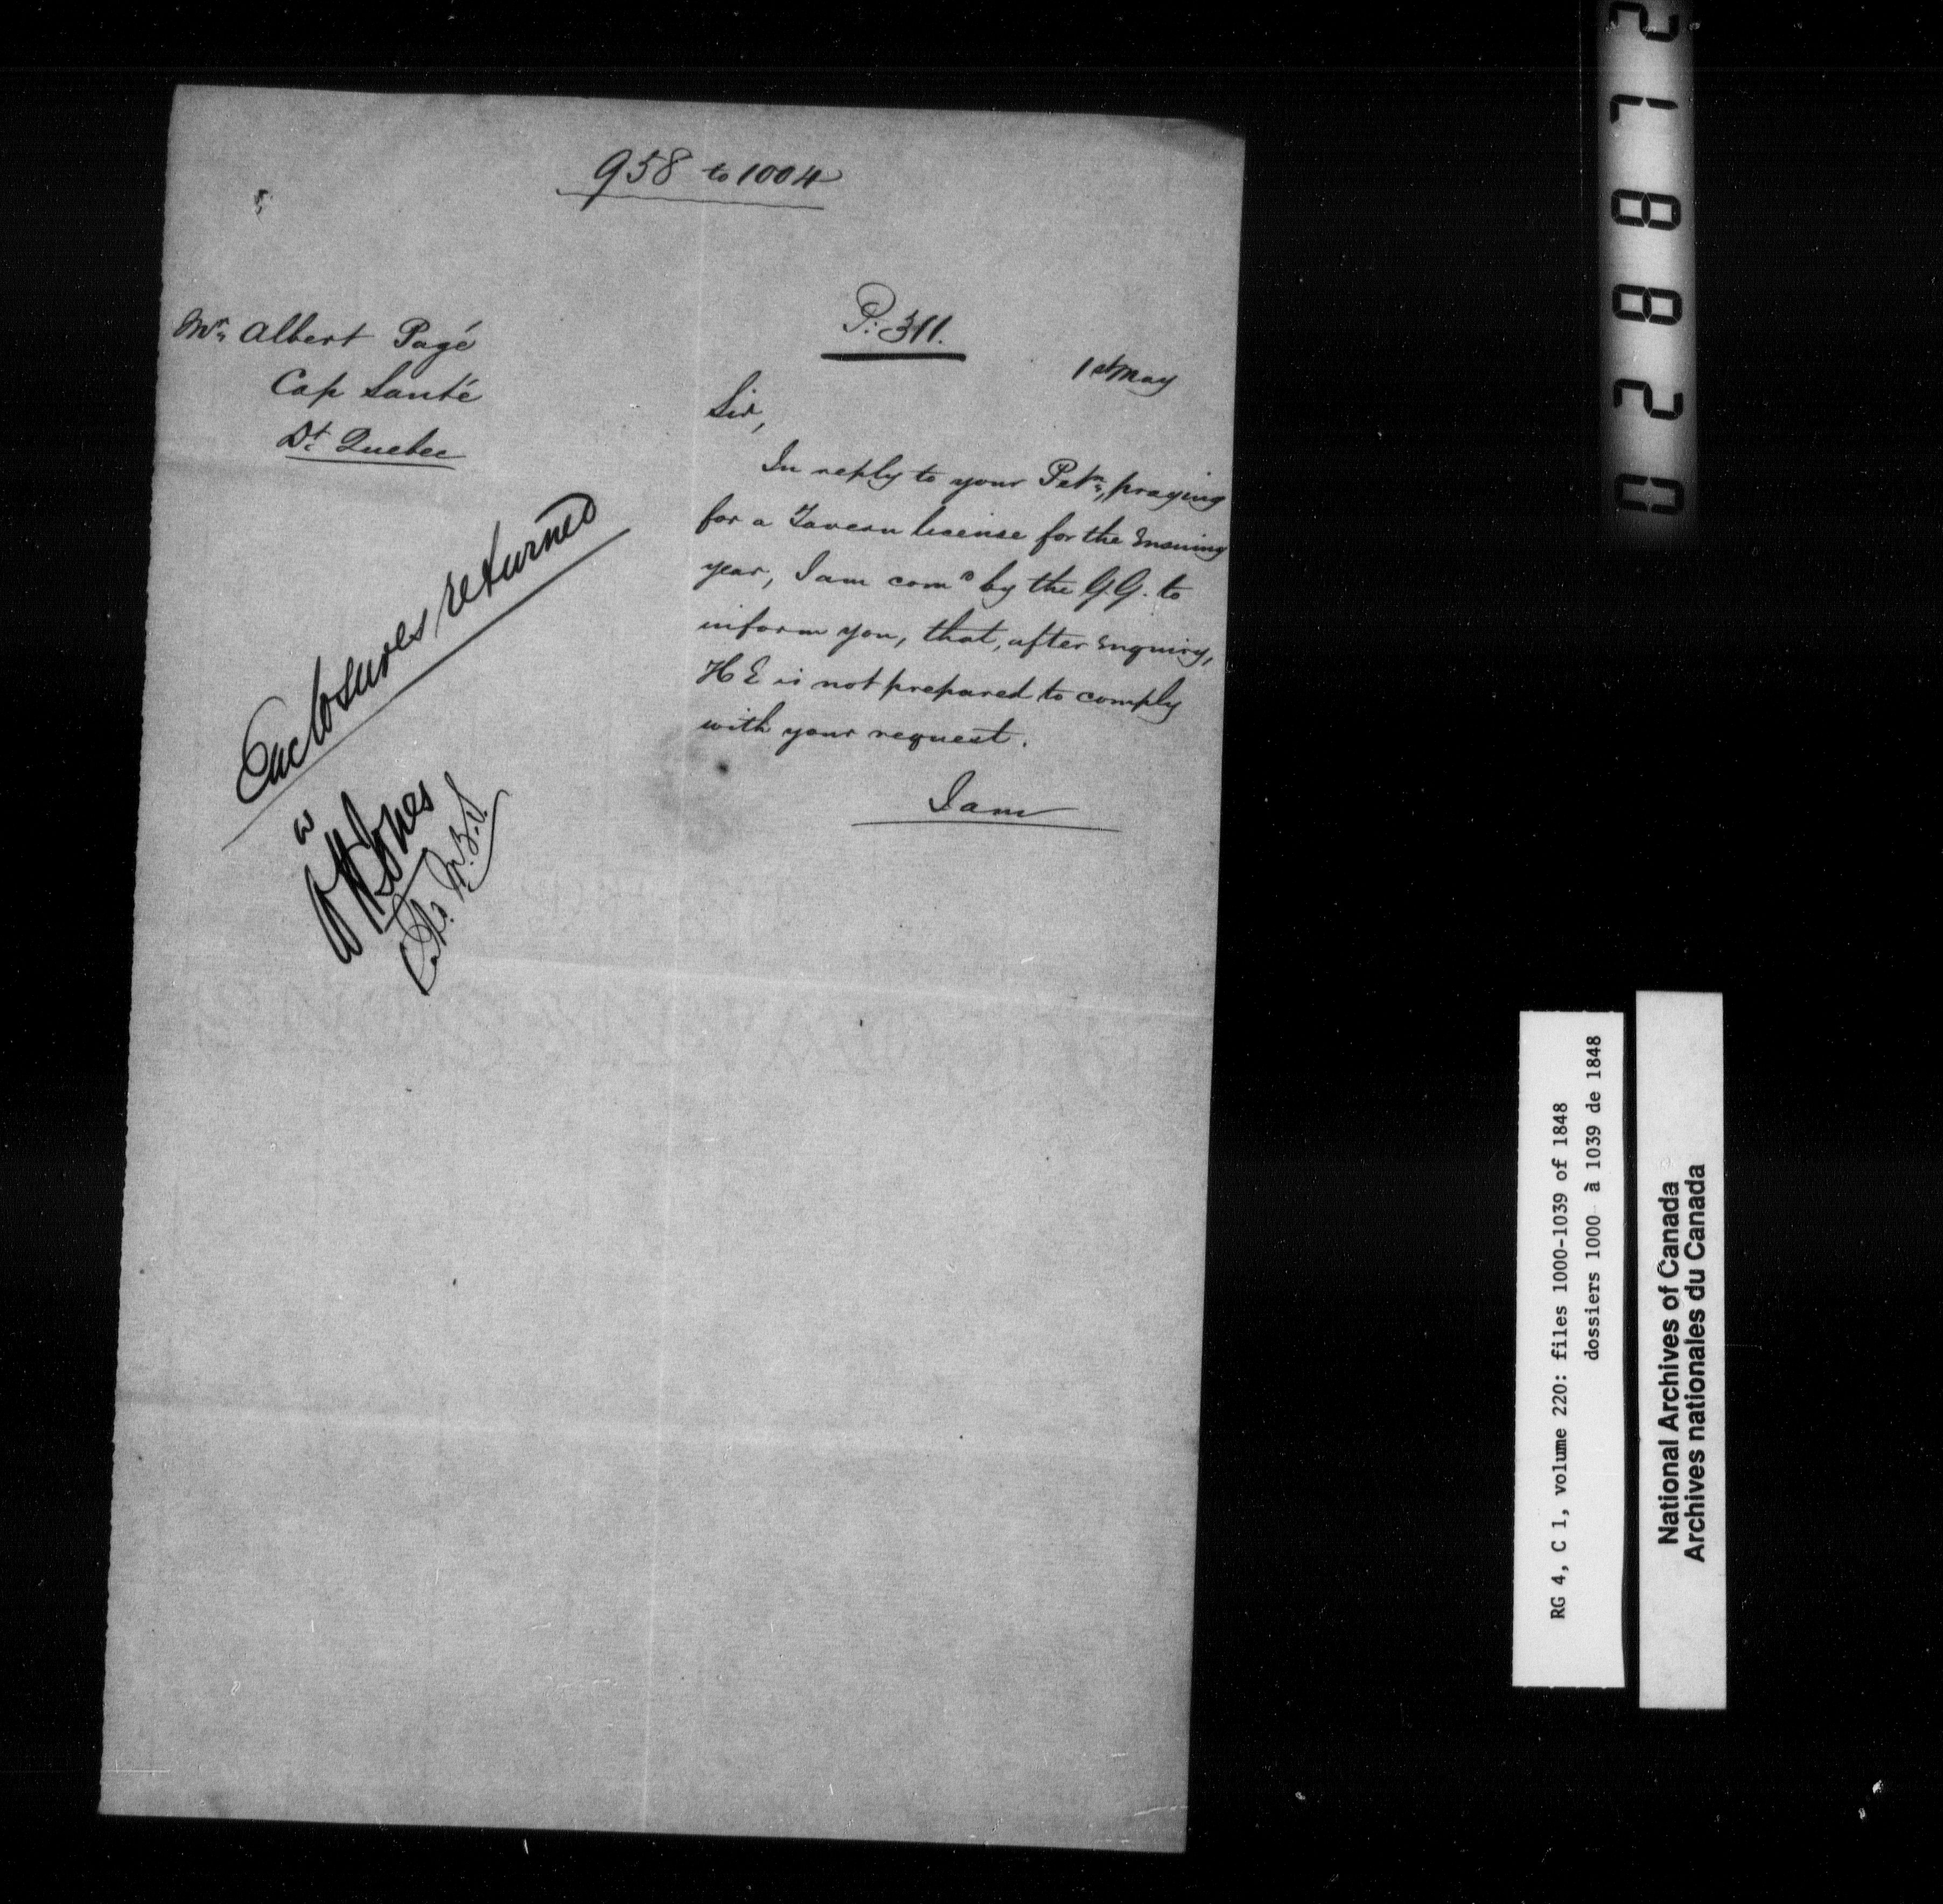 958 to 1004
Mr. Albert Pagé
Cap Santé
Dt. Quebec
P. 311.
1st May
Sir,
In reply to your Petn., praying
for a Tavern license for the Ensuing
year, I am comd by the G.G. to
inform you, that, after Enquiry,
H E is not prepared to comply
with your request.
I am
Enclosures returned
Jones
028872
RG 4, C 1, volume 220: files 1000-1039 of 1848
dossiers 1000 à 1039 de 1848
National Archives of Canada
Archives nationales du Canada